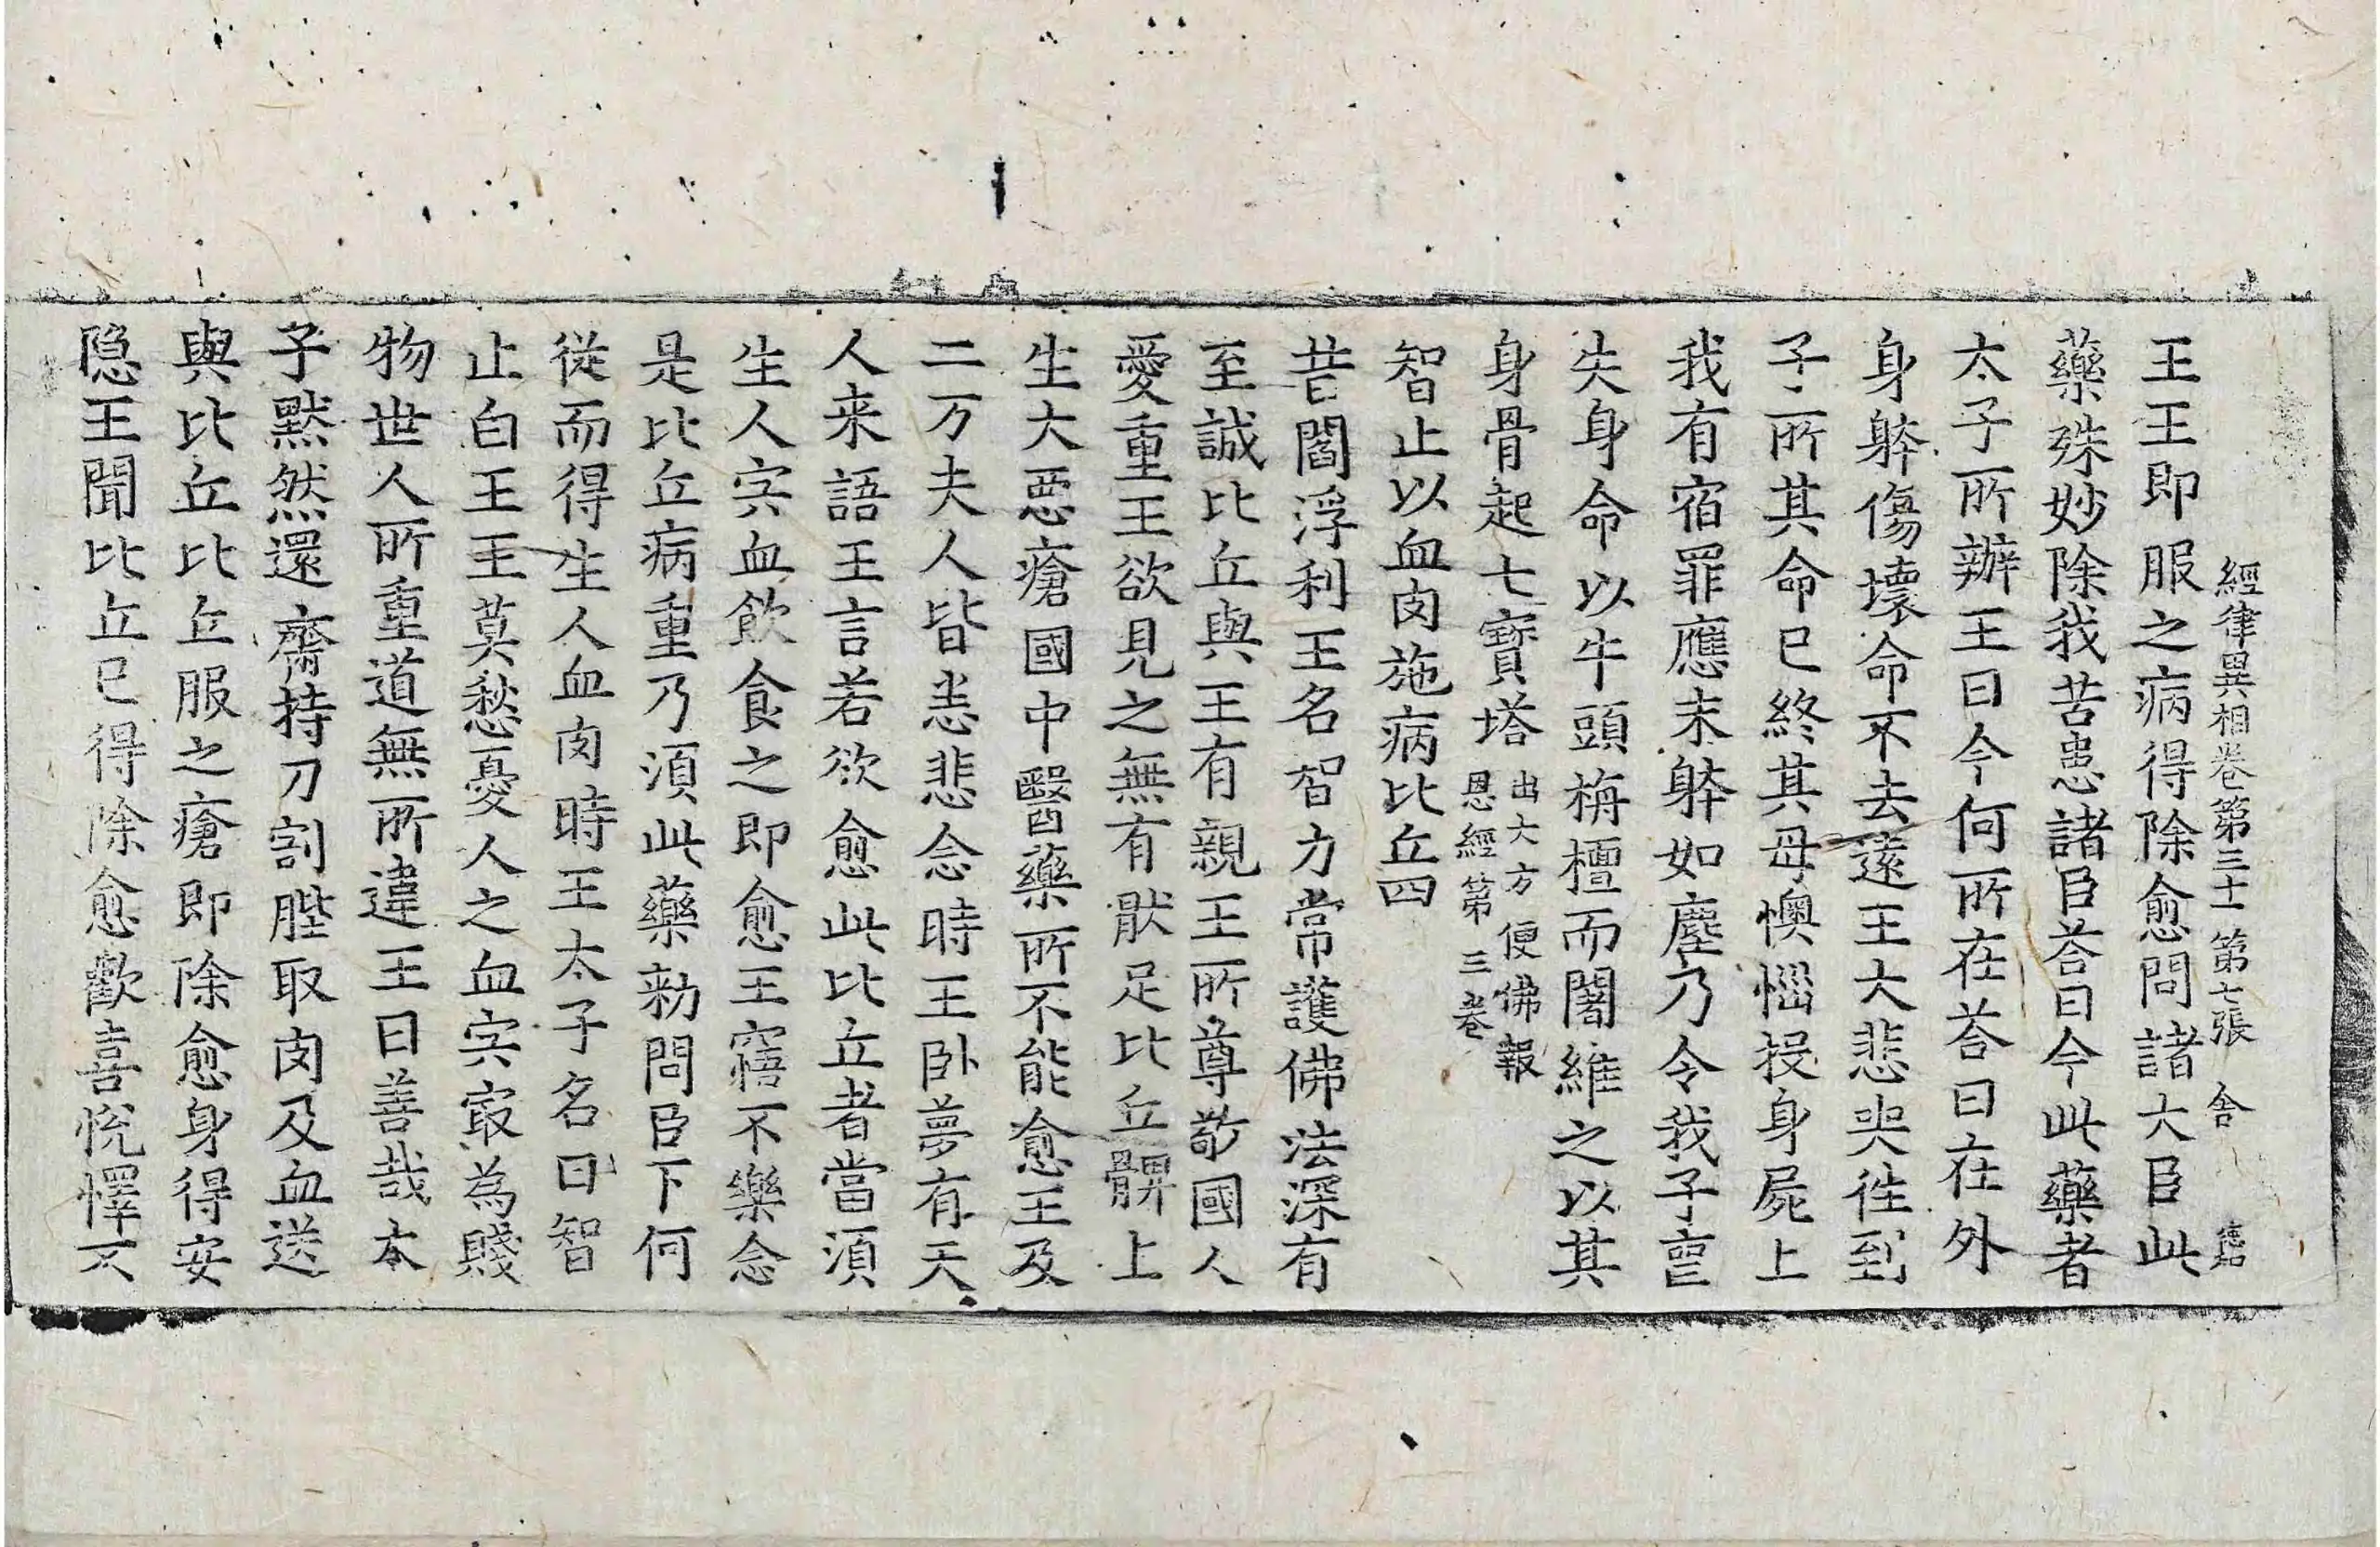 經律異相卷第三十一 第七張 舍
王王即服之病得除愈問諸大臣此
藥殊妙除我苦患諸臣荅曰今此藥者
太子所辦王曰今何所在荅曰在外
身躰傷壞命不去遠王大悲哭徃到
子所其命已終其母懊惱投身屍上
我有宿罪應末躰如塵乃令我子䘮
失身命以牛頭栴檀而闍維之以其
身骨起七寶塔 出大方便佛報
恩經第三卷
智止以血肉施病比丘四
昔閻浮利王名智力常護佛法深有
至誠比丘與王有親王所尊敬國人
愛重王欲見之無有猒足比丘髀上
生大惡瘡國中醫藥所不能愈王及
二万夫人皆恙悲念時王卧夢有天
人来語王言若欲愈此比丘者當須
生人宍血飲食之即愈王寤不樂念
是比丘病重乃須此藥勑問臣下何
從而得生人血肉時王太子名曰智
止白王王莫愁憂人之血宍㝡為賤
物世人所重道無所違王曰善哉本
子默然還齋持刀割䏶取肉及血送
與比丘比丘服之瘡即除愈身得安
隐王聞比丘已得除愈歡喜悅懌不